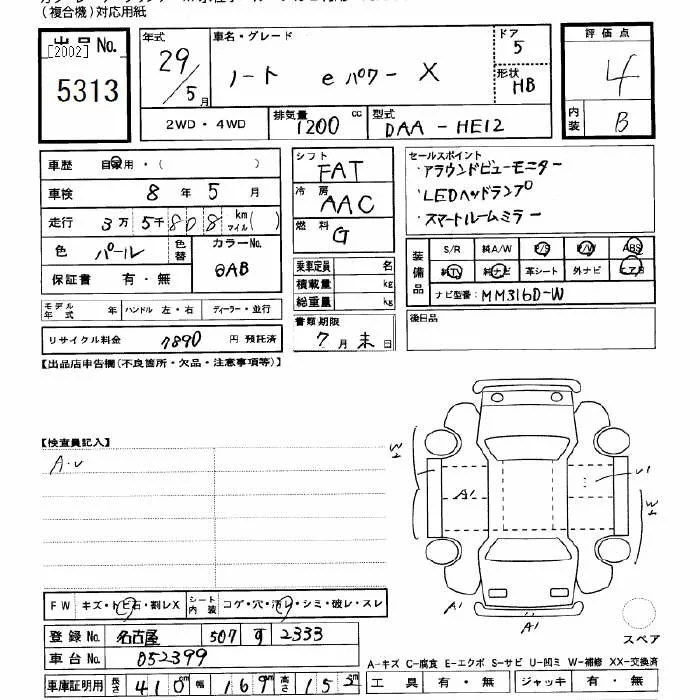 (複合機)対応用紙
出品No.
[2002]
5313
年式 29/5月
車名・グレード ノート eパワー X
ドア 5
形状 HB
評価点 4
内装 B
2WD・4WD
排気量 1200 cc
型式 DAA-HE12
車歴 自家用・( )
車検 8年 5月
走行 3万 5千 808 km マイル( )
色 パール
色替
カラーNo. QAB
保証書 有・無
シフト FAT
冷房 AAC
燃料 G
乗車定員 名
積載量 kg
総重量 kg
セールスポイント
・アラウンドビューモニター
・LEDヘッドランプ
・スマートルームミラー
装備品
S/R 純A/W P/S P/W ABS
純TV 純ナビ 革シート 外ナビ エアB
ナビ型番: MM316D-W
モデル年式 年 ハンドル 左・右 ディーラー・並行
書類期限 7月末日
後日品
リサイクル料金 7890 円 預託済
【出品店申告欄(不良箇所・欠品・注意事項等)】
【検査員記入】
A・U
W1
A1
U1
W1
A1
A1
スペア
FW キズ・トビ石・割レX
シート内装 コゲ・穴・汚レ・シミ・破レ・スレ
登録No. 名古屋 507 す 2333
車台No. 052399
車庫証明用 長さ 410cm 幅 169cm 高さ 153cm
A-キズ C-腐食 E-エクボ S-サビ U-凹ミ W-補修 XX-交換済
工具 有・無 ジャッキ 有・無